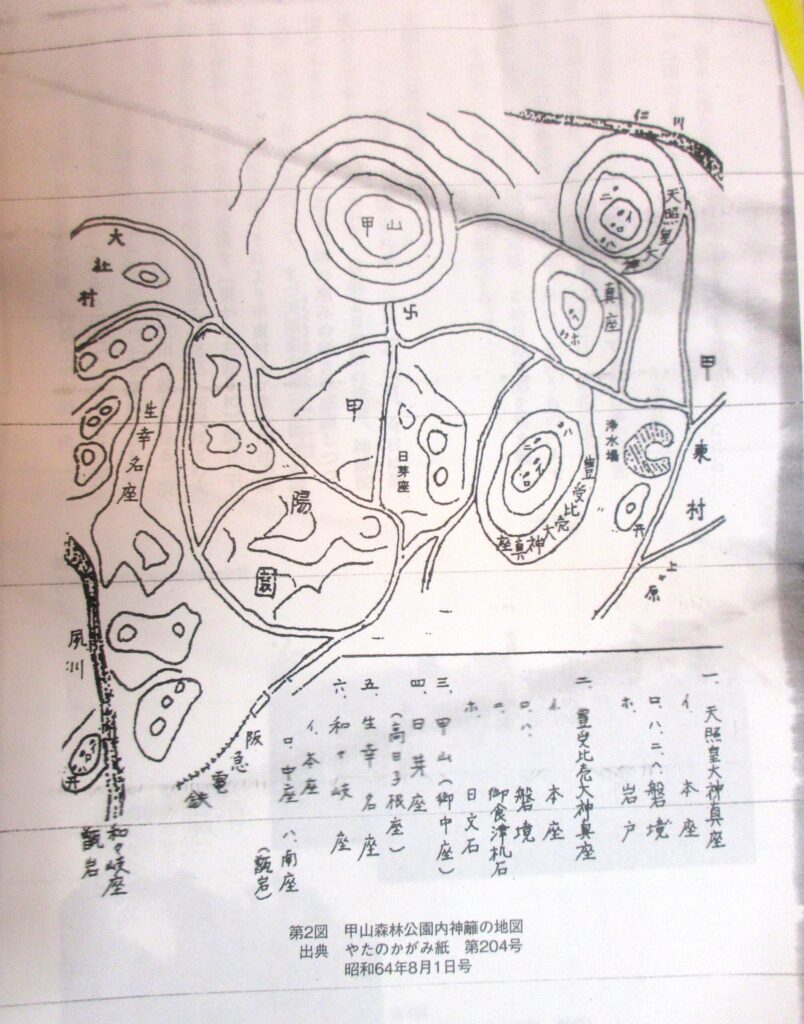 仁川
甲山
天照皇大神
真座
大社村
卍
甲
陽
園
生幸名座
日芽座
浄水場
豊受比売大神真座
甲東村
上原
夙川
阪急電鉄
和々岐座
甑岩
一、天照皇大神真座
イ、本座
ロ、ハ、ニ、ヘ、磐境
ホ、岩戸
二、豊受比売大神真座
イ、本座
ロ、ハ、磐境
ニ、御食津机石
ホ、日文石
三、甲山(御中座)
四、日芽座
(高日子根座)
五、生幸名座
六、和々岐座
イ、本座
ロ、中座 ハ、南座
(甑岩)
第2図 甲山森林公園内神籬の地図
出典 やたのかがみ紙 第204号
昭和64年8月1日号